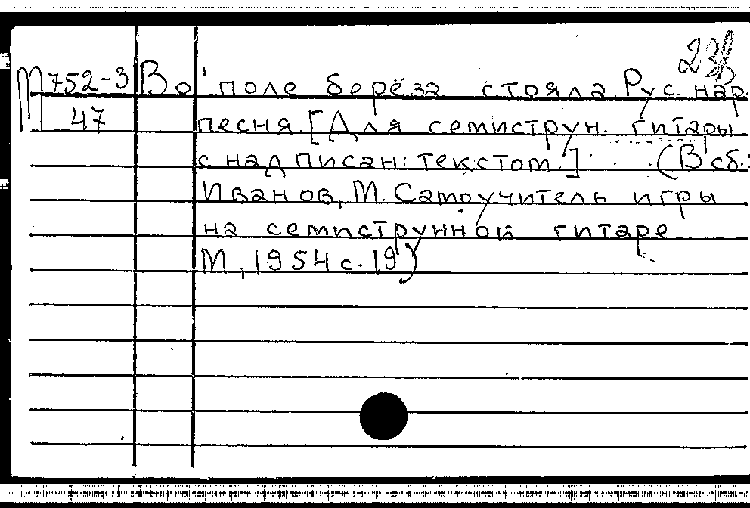 М752-3 Во поле берёза стояла Рус. нар.
47 песня. [Для семиструн. гитары
с надписан. текстом.] (В сб.:
Иванов, М. Самоучитель игры
на семиструнной гитаре
М., 1954 с. 19)